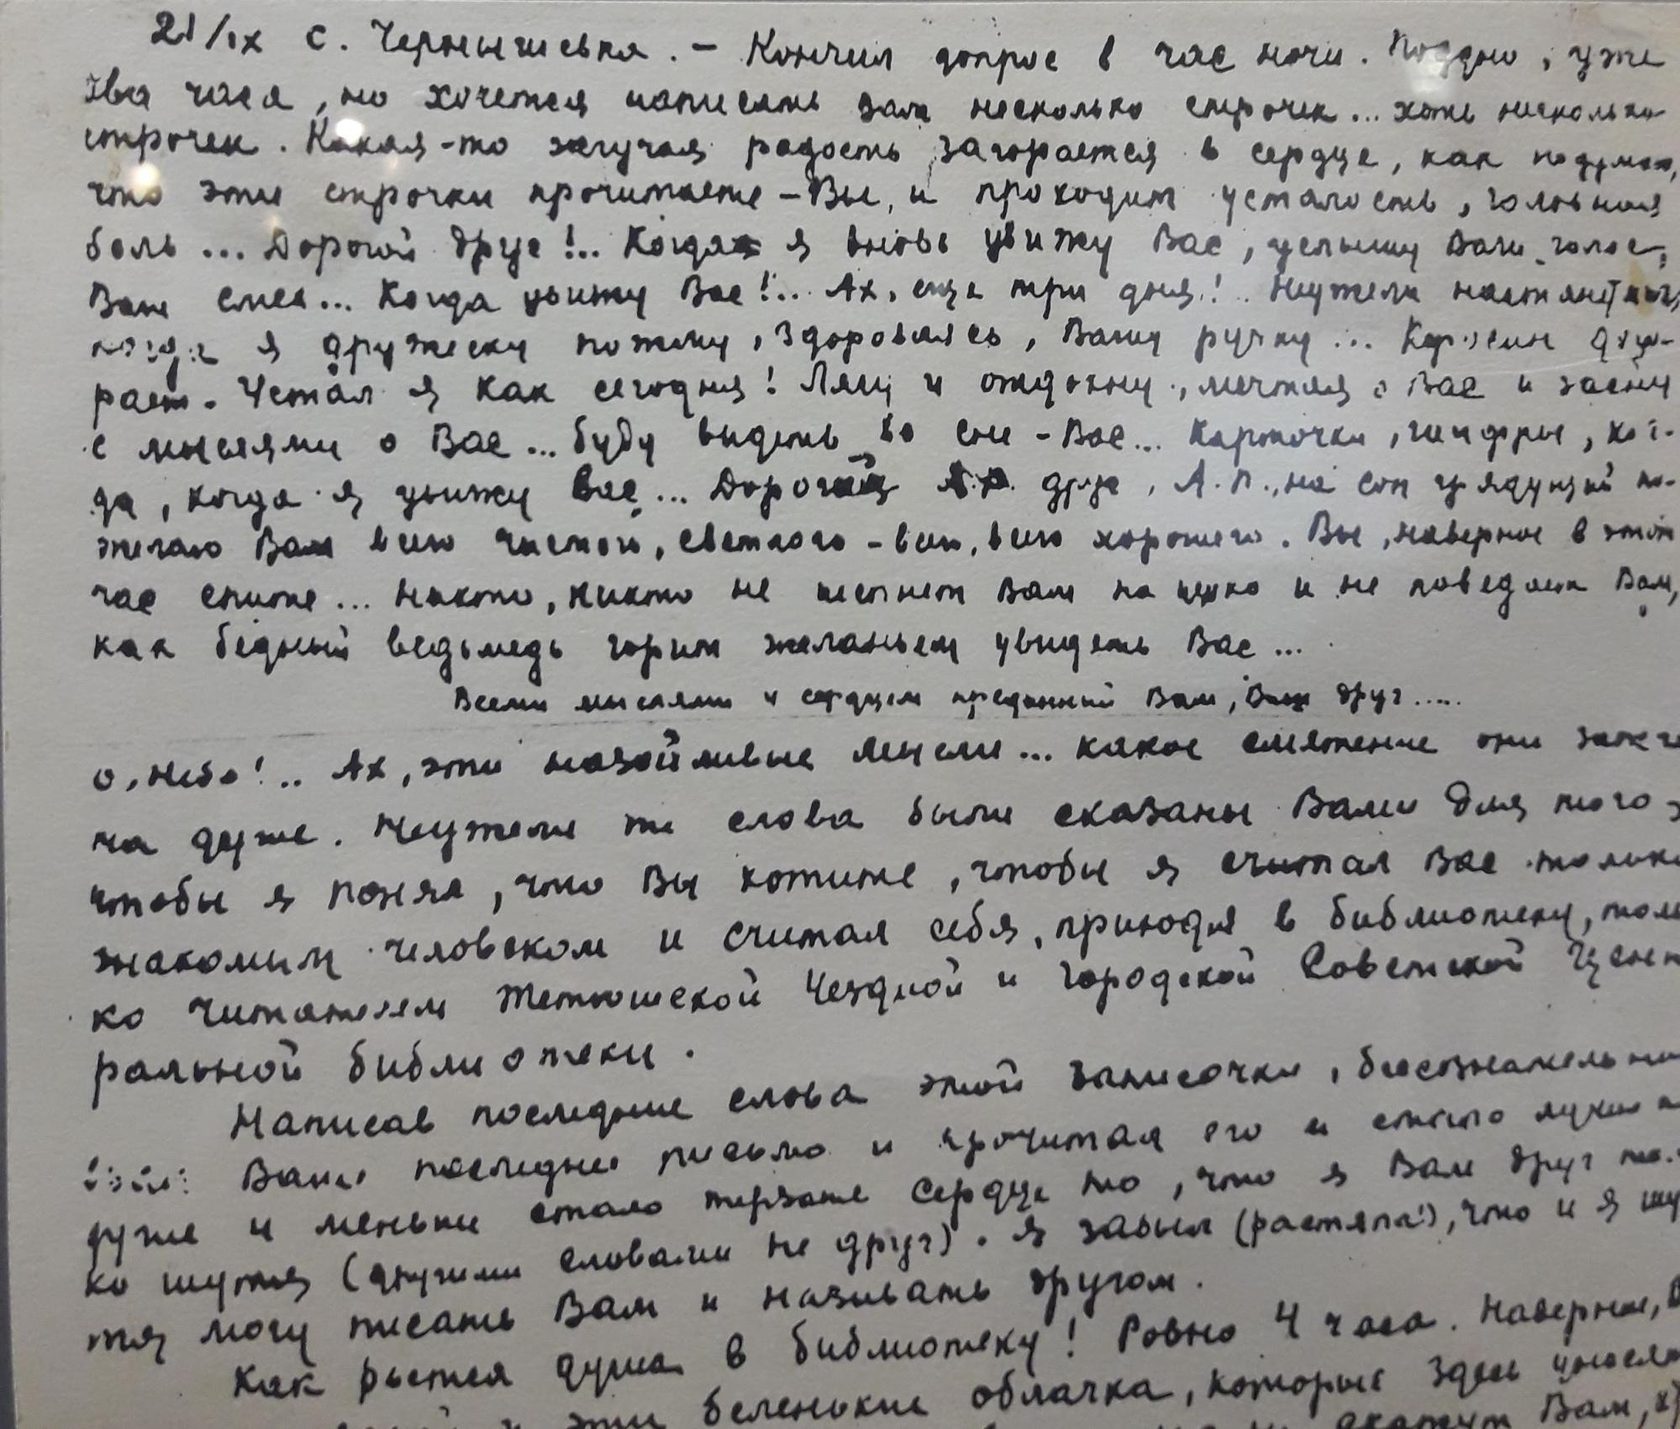 21/IX с. Чернышевка. – Кончил допрос в час ночи. Поздно, уже
два часа, но хочется написать Вам несколько строчек... хоть несколько
строчек. Какая-то жгучая радость загорается в сердце, как подумаю,
что эти строчки прочитаете – Вы, и проходит усталость, головная
боль... Дорогой друг!.. Когда я вновь увижу Вас, услышу Ваш голос,
Ваш смех... Когда увижу Вас!.. Ах, еще три дня!.. Неужели настанет
когда я дружески пожму, здороваясь, Вашу ручку... Керосин дого-
рает. Устал я как сегодня! Лягу и отдохну, мечтая о Вас и засну
с мыслями о Вас... буду видеть во сне – Вас... Карточки, шифры, ког-
да, когда я увижу Вас... Дорогой друг, А.П., на сон грядущий по-
желаю Вам всего чистого, светлого – всего, всего хорошего. Вы, наверное в этот
час спите... Никто, никто не шепнет Вам на ушко и не поведает Вам,
как бедный ведьмедь горит желаньем увидеть Вас...
Всеми мыслями и сердцем преданный Вам, Ваш друг.....
О, небо!.. Ах, эти назойливые мысли... какое смятение они
на душе. Неужели те слова были сказаны Вами для того,
чтобы я понял, что Вы хотите, чтобы я считал Вас только
знакомым человеком и считал себя, приходя в библиотеку, толь
ко читателем Тетюшской Уездной и Городской Советской Цент
ральной библиотеки.
Написав последние слова этой записочки, бессознательно
Ваше последнее письмо и прочитал его и стало лучше на
душе и меньше стало терзать сердце то, что я Вам друг толь
ко шутя (другими словами не друг). Я забыл (растяпа!), что и я шу
тя могу писать Вам и называть другом.
Как рвется душа в библиотеку! Ровно 4 часа. Наверное, В
и эти беленькие облачка, которые здесь
Вам,